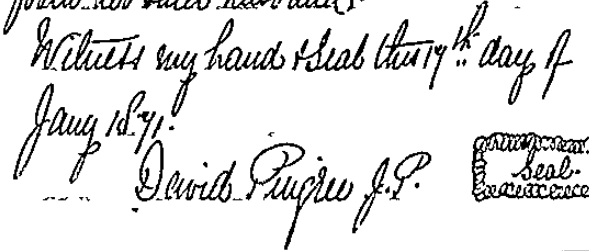 Witness my hand & Seal this 17th day of
Jany 1871.
David Pingree J.P.
Seal.